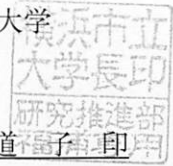 大学
横浜市立
大学長印
研究推進部
福浦専用
道 子 印